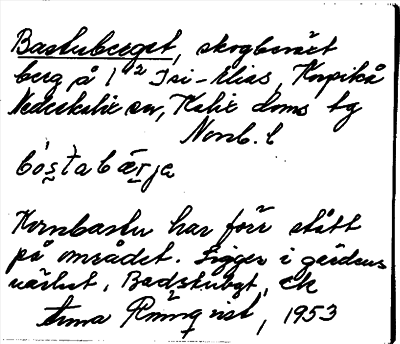 Bastuberget, skogbeväxt
berg på 1⁄2 Isi-Elias, Korpikå
Nederkalix sn, Kalix doms tg
Norrb. l
bástabärja
Kornbastu har förr stått
på området. Ligger i gärdens
närhet, Badstubgt, Ek
Anna Rönnqvist, 1953